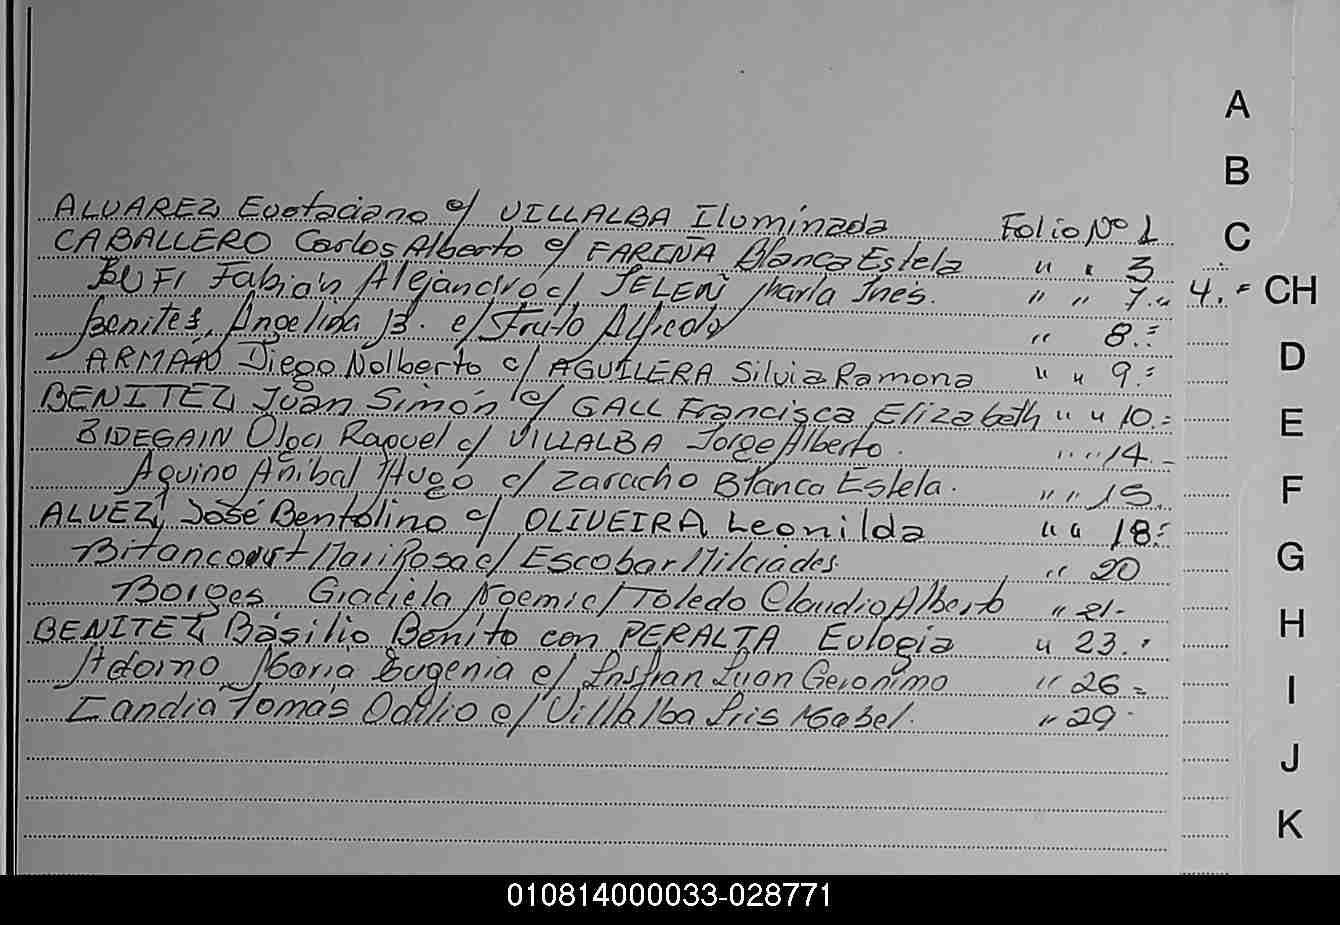 A
B
C
CH
D
E
F
G
H
I
J
K
ALVAREZ Eustaciano c/ VILLALBA Iluminada Folio Nº 1
CABALLERO Carlos Alberto c/ FARIÑA Blanca Estela " " 3
BUFI Fabian Alejandro c/ JELEÑ Maria Ines. " " 7." 4.=
Benites, Angelina B. c/ Fruto Alfredo " 8.=
ARMAO Diego Nolberto c/ AGUILERA Silvia Ramona " " 9.=
BENITEZ, Juan Simón c/ GALL Francisca Elizabeth " " 10.=
BIDEGAIN Olga Raquel c/ VILLALBA Jorge Alberto. " " 14.-
Aquino Anibal Hugo c/ Zaracho Blanca Estela. " " 15.
ALVEZ, José Bentolino c/ OLIVEIRA Leonilda " " 18.=
Bitancourt Mari Rosa c/ Escobar Milciades " 20
Borges Graciela Noemi c/ Toledo Claudio Alberto " 21.-
BENITEZ Básilio Benito con PERALTA Eulogia " 23.-
Adorno Maria Eugenia c/ Insfran Juan Geronimo " 26=
Candia Tomás Odilio c/ Villalba Liis Mabel. " 29-
010814000033-028771